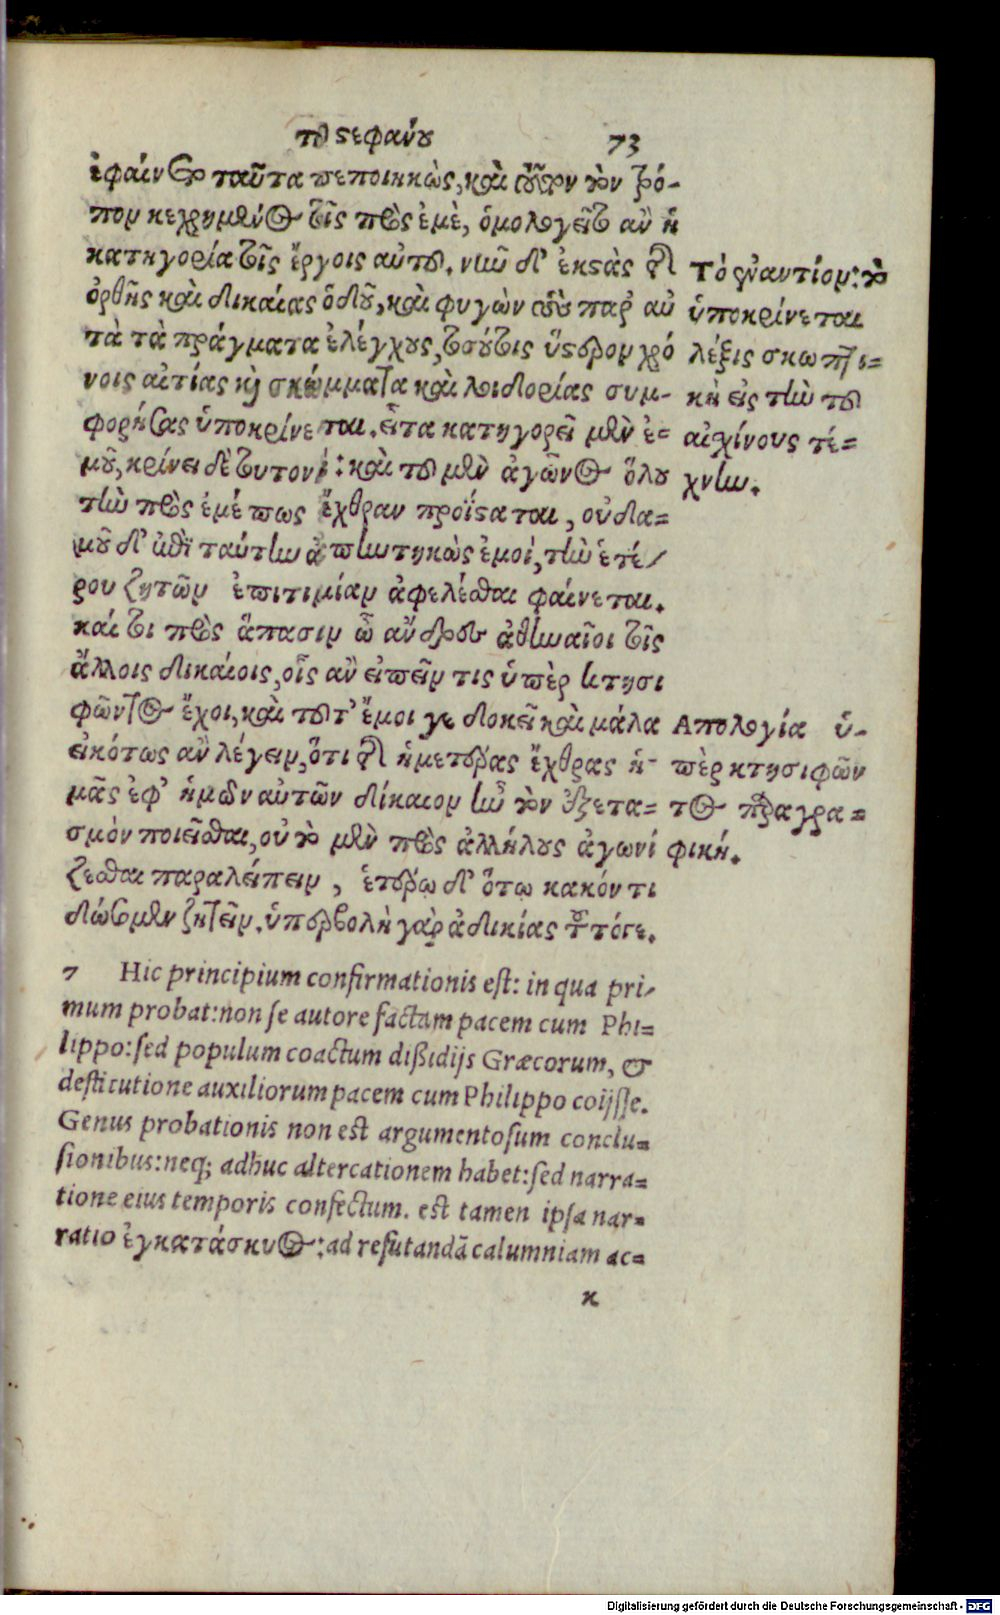 τοῦ στεφάνου 73
ἐφαίνετο ταῦτα πεποιηκὼς, καὶ τοῦτον τὸν τρό-
πον κεχρημένος τοῖς πρὸς ἐμὲ, ὁμολογεῖτο ἂν ἡ
κατηγορία τοῖς ἔργοις αὐτοῦ. νῦν δ' ἐκστὰς τῆς
ὀρθῆς καὶ δικαίας ὁδοῦ, καὶ φυγὼν τοὺς παρ' αὐ
τὰ τὰ πράγματα ἐλέγχους, τοσούτοις ὕστερον χρό
νοις αἰτίας καὶ σκώμματα καὶ λοιδορίας συμ-
φορήσας ὑποκρίνεται. εἶτα κατηγορεῖ μὲν ἐ=
μοῦ, κρίνει δὲ τουτονί: καὶ τοῦ μὲν ἀγῶνος ὅλου
τὴν πρὸς ἐμέ πως ἔχθραν προΐσταται, οὐδα=
μοῦ δ' ἐπὶ ταύτην ἀπηντηκὼς ἐμοί, τὴν ἑτέ/
ρου ζητῶν ἐπιτιμίαν ἀφελέσθαι φαίνεται.
καί τοι πρὸς ἅπασιν ὦ ἄνδρες ἀθηναῖοι τοῖς
ἄλλοις δικαίοις, οἷς ἂν εἰπεῖν τις ὑπὲρ κτησι
φῶντος ἔχοι, καὶ τοῦτ' ἔμοι γε δοκεῖ καὶ μάλα
εἰκότως ἂν λέγειν, ὅτι τῆς ἡμετέρας ἔχθρας ἡ-
μᾶς ἐφ' ἡμῶν αὐτῶν δίκαιον ἦν τὸν ἐξετα=
σμὸν ποιεῖσθαι, οὐ τὸ μὲν πρὸς ἀλλήλους ἀγωνί
ζεσθαι παραλείπειν, ἑτέρῳ δ' ὅτῳ κακόν τι
δώσομεν ζητεῖν. ὑπερβολὴ γὰρ ἀδικίας τοῦτό γε.
Τὸ ἐναντίον: τὸ
ὑποκρίνεται
λέξις σκωπτι=
κὴ εἰς τὴν τοῦ
αἰσχίνους τέ=
χνην.
Απολογία ὑ-
πὲρ κτησιφῶν
τος παραγρα=
φική.
7 Hic principium confirmationis est: in qua pri-
mum probat: non se autore factam pacem cum Phi=
lippo: sed populum coactum dißidijs Græcorum, &
destitutione auxiliorum pacem cum Philippo coijsse.
Genus probationis non est argumentosum conclu=
sionibus: neq; adhuc altercationem habet: sed narra=
tione eius temporis confectum. est tamen ipsa nar=
ratio ἐγκατάσκευος: ad refutandã calumniam ac=
κ
Digitalisierung gefördert durch die Deutsche Forschungsgemeinschaft - DFG